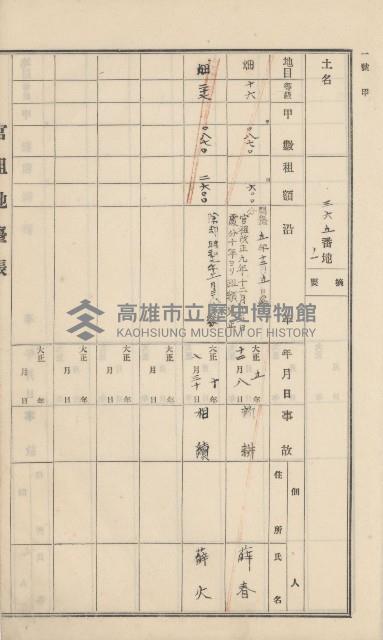 一號甲
土名
三六五番地
ノ一
摘要
地目
等級
甲數
租額
沿革
年月日
事故
佃人
住所
氏名
畑
十六
〇八七〇
官租改正九年十二月
處分十年ヨリ租額
大正五年
十二月八日
新耕
薛春
畑
〇八七〇
二六〇〇
大正十年
八月三十日
相續
薛火
大正年
月日
大正年
月日
大正年
月日
大正年
月日
官租地臺帳
高雄市立歷史博物館
KAOHSIUNG MUSEUM OF HISTORY